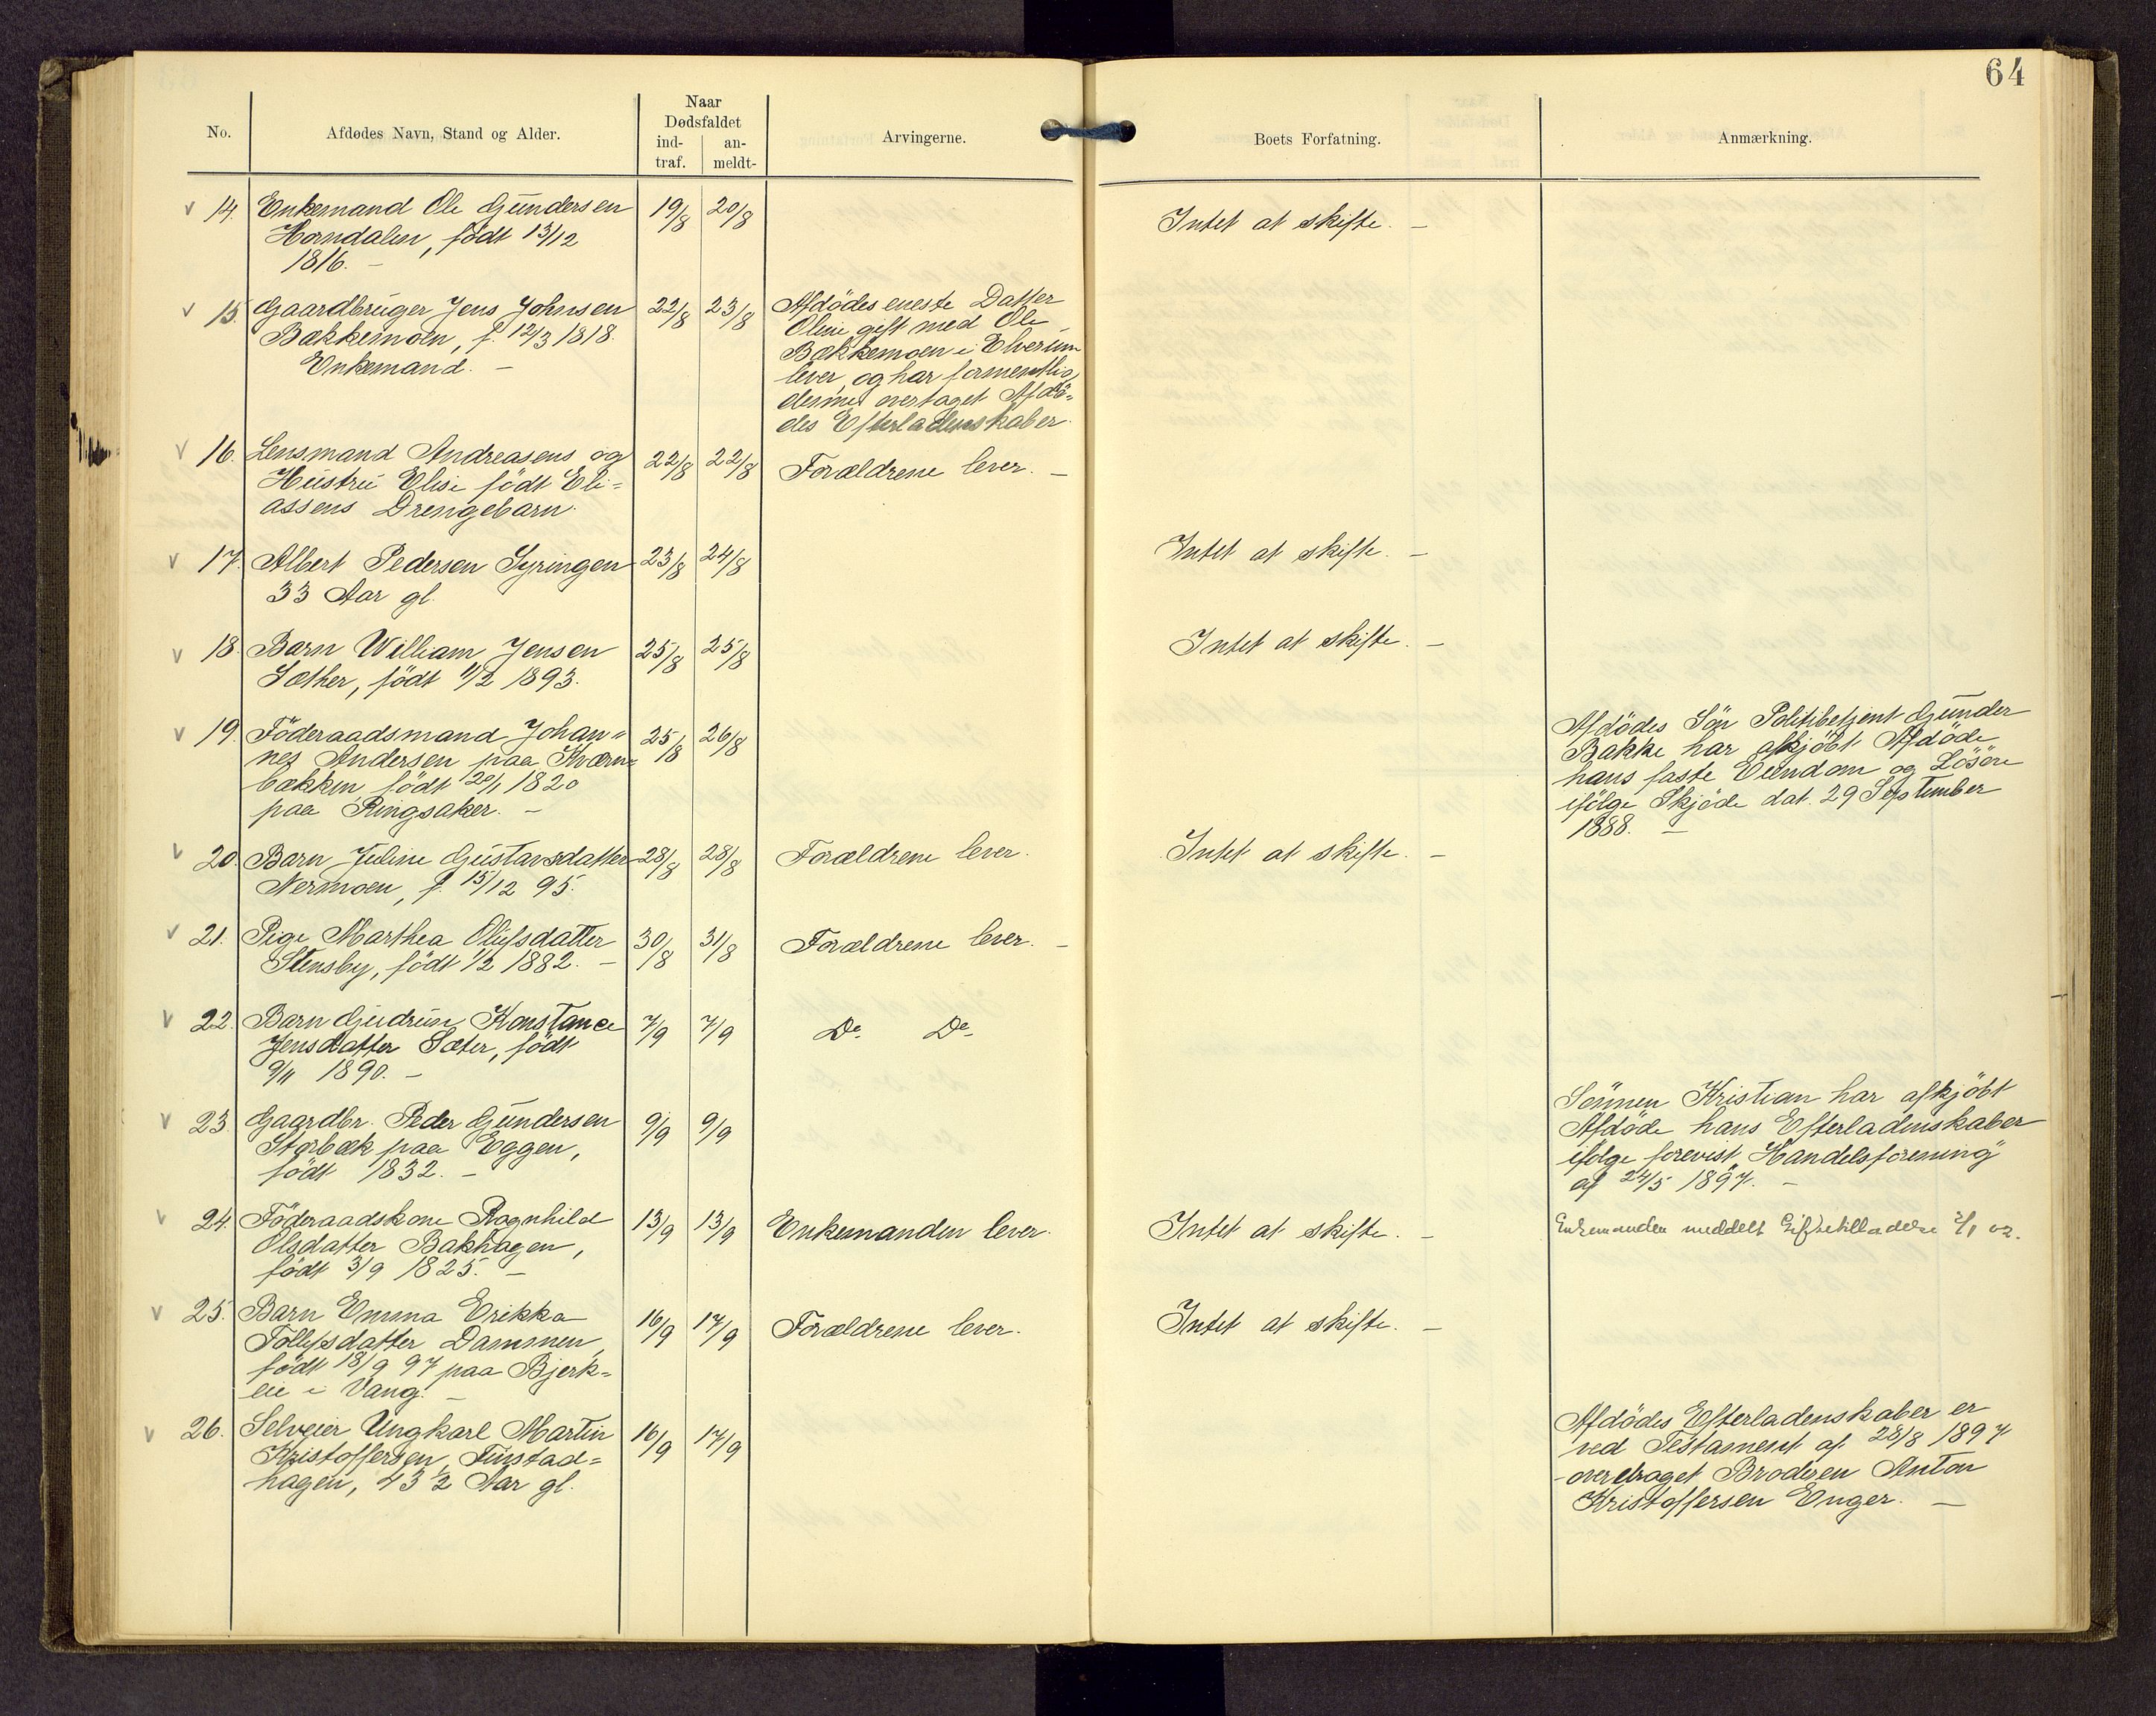 64
No.
Afdødes Navn, Stand og Alder.
Naar
Dødsfaldet
ind-
traf.
an-
meldt-
Arvingerne.
Boets Forfatning.
Anmærkning.
14. Enkemand Ole Gundersen 19/8 20/8 Intet at skifte. —
Horndalen, födt 13/12
1816. —
15. Gaardbruger Jens Johnsen 22/8 23/8 Afdödes eneste Datter
Bækkemoen, f. 12/3 1818. Oline gift med Ole
Enkemand. — Bækkemoen i Elverum
lever, og har formentlig
overtaget Afdö-
des Efterladenskaber.
16. Lensmand Andreasens og 22/8 22/8 Forældrene lever. —
Hustru Elise födt Eli-
assens Drengebarn.
17. Albert Pedersen Syringen 23/8 24/8 Intet at skifte. —
33 Aar gl.
18. Barn William Jensen 25/8 25/8 Intet at skifte. —
Sæther, födt 11/2 1893.
19. Föderaadsmand Johan- 25/8 26/8 Afdödes Sön Politibetjent Gunder
nes Andersen paa Kværn- Bakke har afkjöbt Afdöde
bækken, födt 20/1 1820 hans faste Eiendom og Lösöre
paa Ringsaker. — ifölge Skjöde dat. 29 September
1888. —
20. Barn Juline Gustavsdatter 28/8 28/8 Forældrene lever. Intet at skifte. —
Nermoen, f. 15/12 95.
21. Pige Marthea Olufsdatter 30/8 31/8 Forældrene lever. —
Stensby, födt 1/2 1882. —
22. Barn Gudrun Konstance 7/9 7/9 Do. Do.
Jensdatter Sæter, födt
9/11 1890. —
23. Gaardbr. Peder Gundersen 9/9 9/9 Sönnen Kristian har afkjöbt
Storbæk paa Eggen, Afdöde hans Efterladenskaber
födt 1832. — ifölge forevist Handelsforening
af 24/5 1897. —
24. Föderaadskone Ragnhild 13/9 13/9 Enkemanden lever. Intet at skifte. — Enkemanden meddelt Giftetilladelse 2/1 02.
Olsdatter Bakhagen,
födt 3/9 1825. —
25. Barn Emma Erikka 16/9 17/9 Forældrene lever. Intet at skifte. —
Tollefsdatter Dammen,
födt 18/9 97 paa Bjerk-
eie i Vang. —
26. Selveier Ungkarl Martin 16/9 17/9 Afdödes Efterladenskaber er
Kristoffersen, Finstad- ved Testament af 28/8 1897
hagen, 43 1/2 Aar gl. overdraget Broderen Anton
Kristoffersen Enger. —